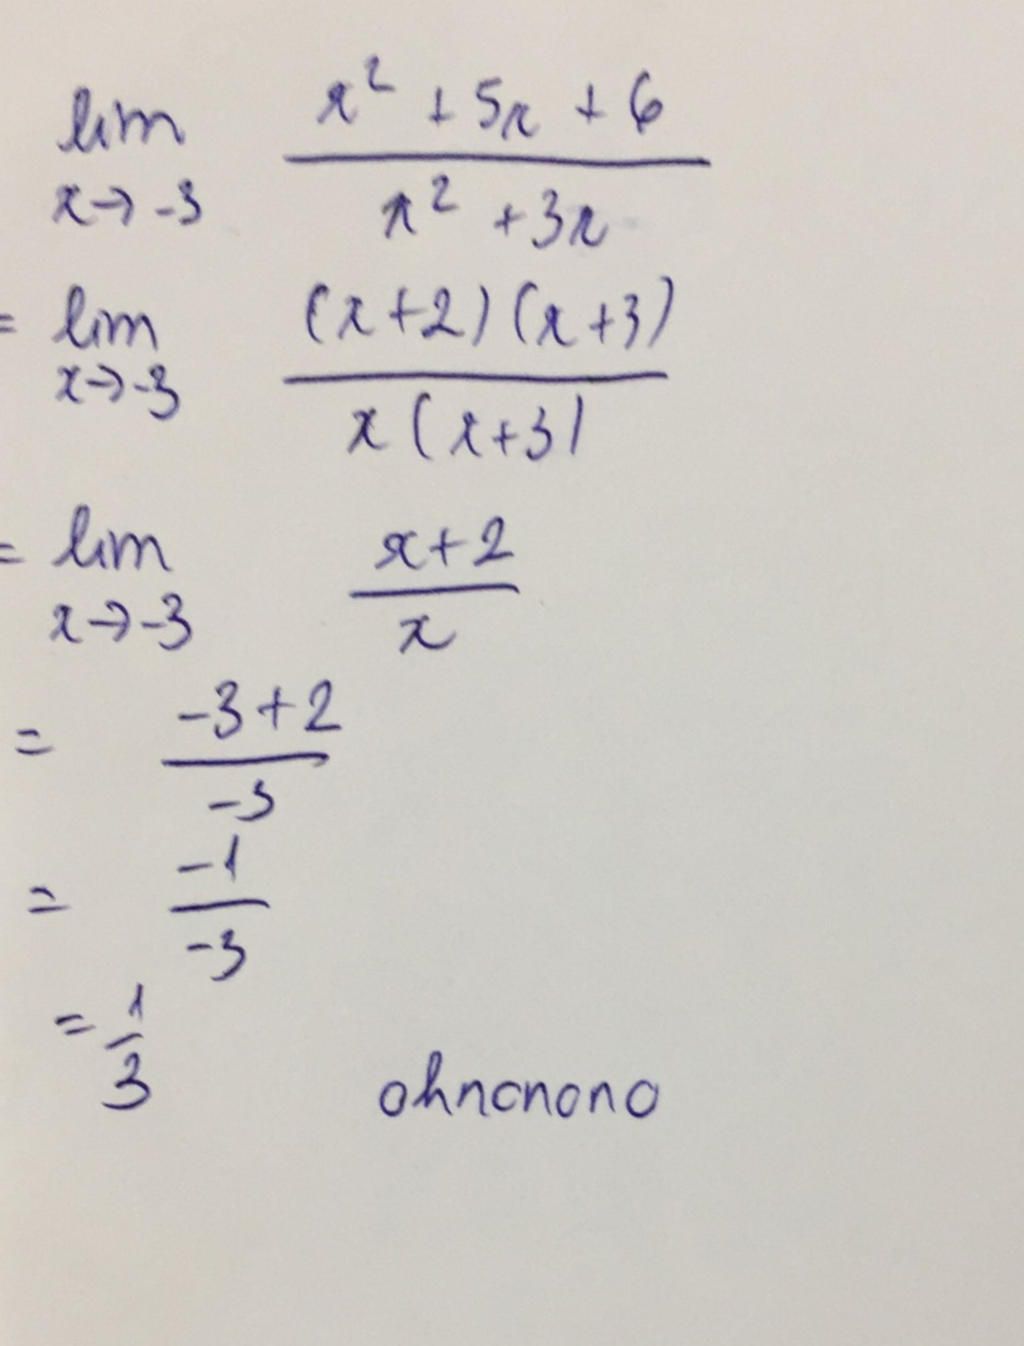 lim x² + 5x + 6
x→-3 x² + 3x
= lim (x+2)(x+3)
x→-3 x(x+3)
= lim x+2
x→-3 x
= -3+2
-3
= -1
-3
= 1
3
ohnonono